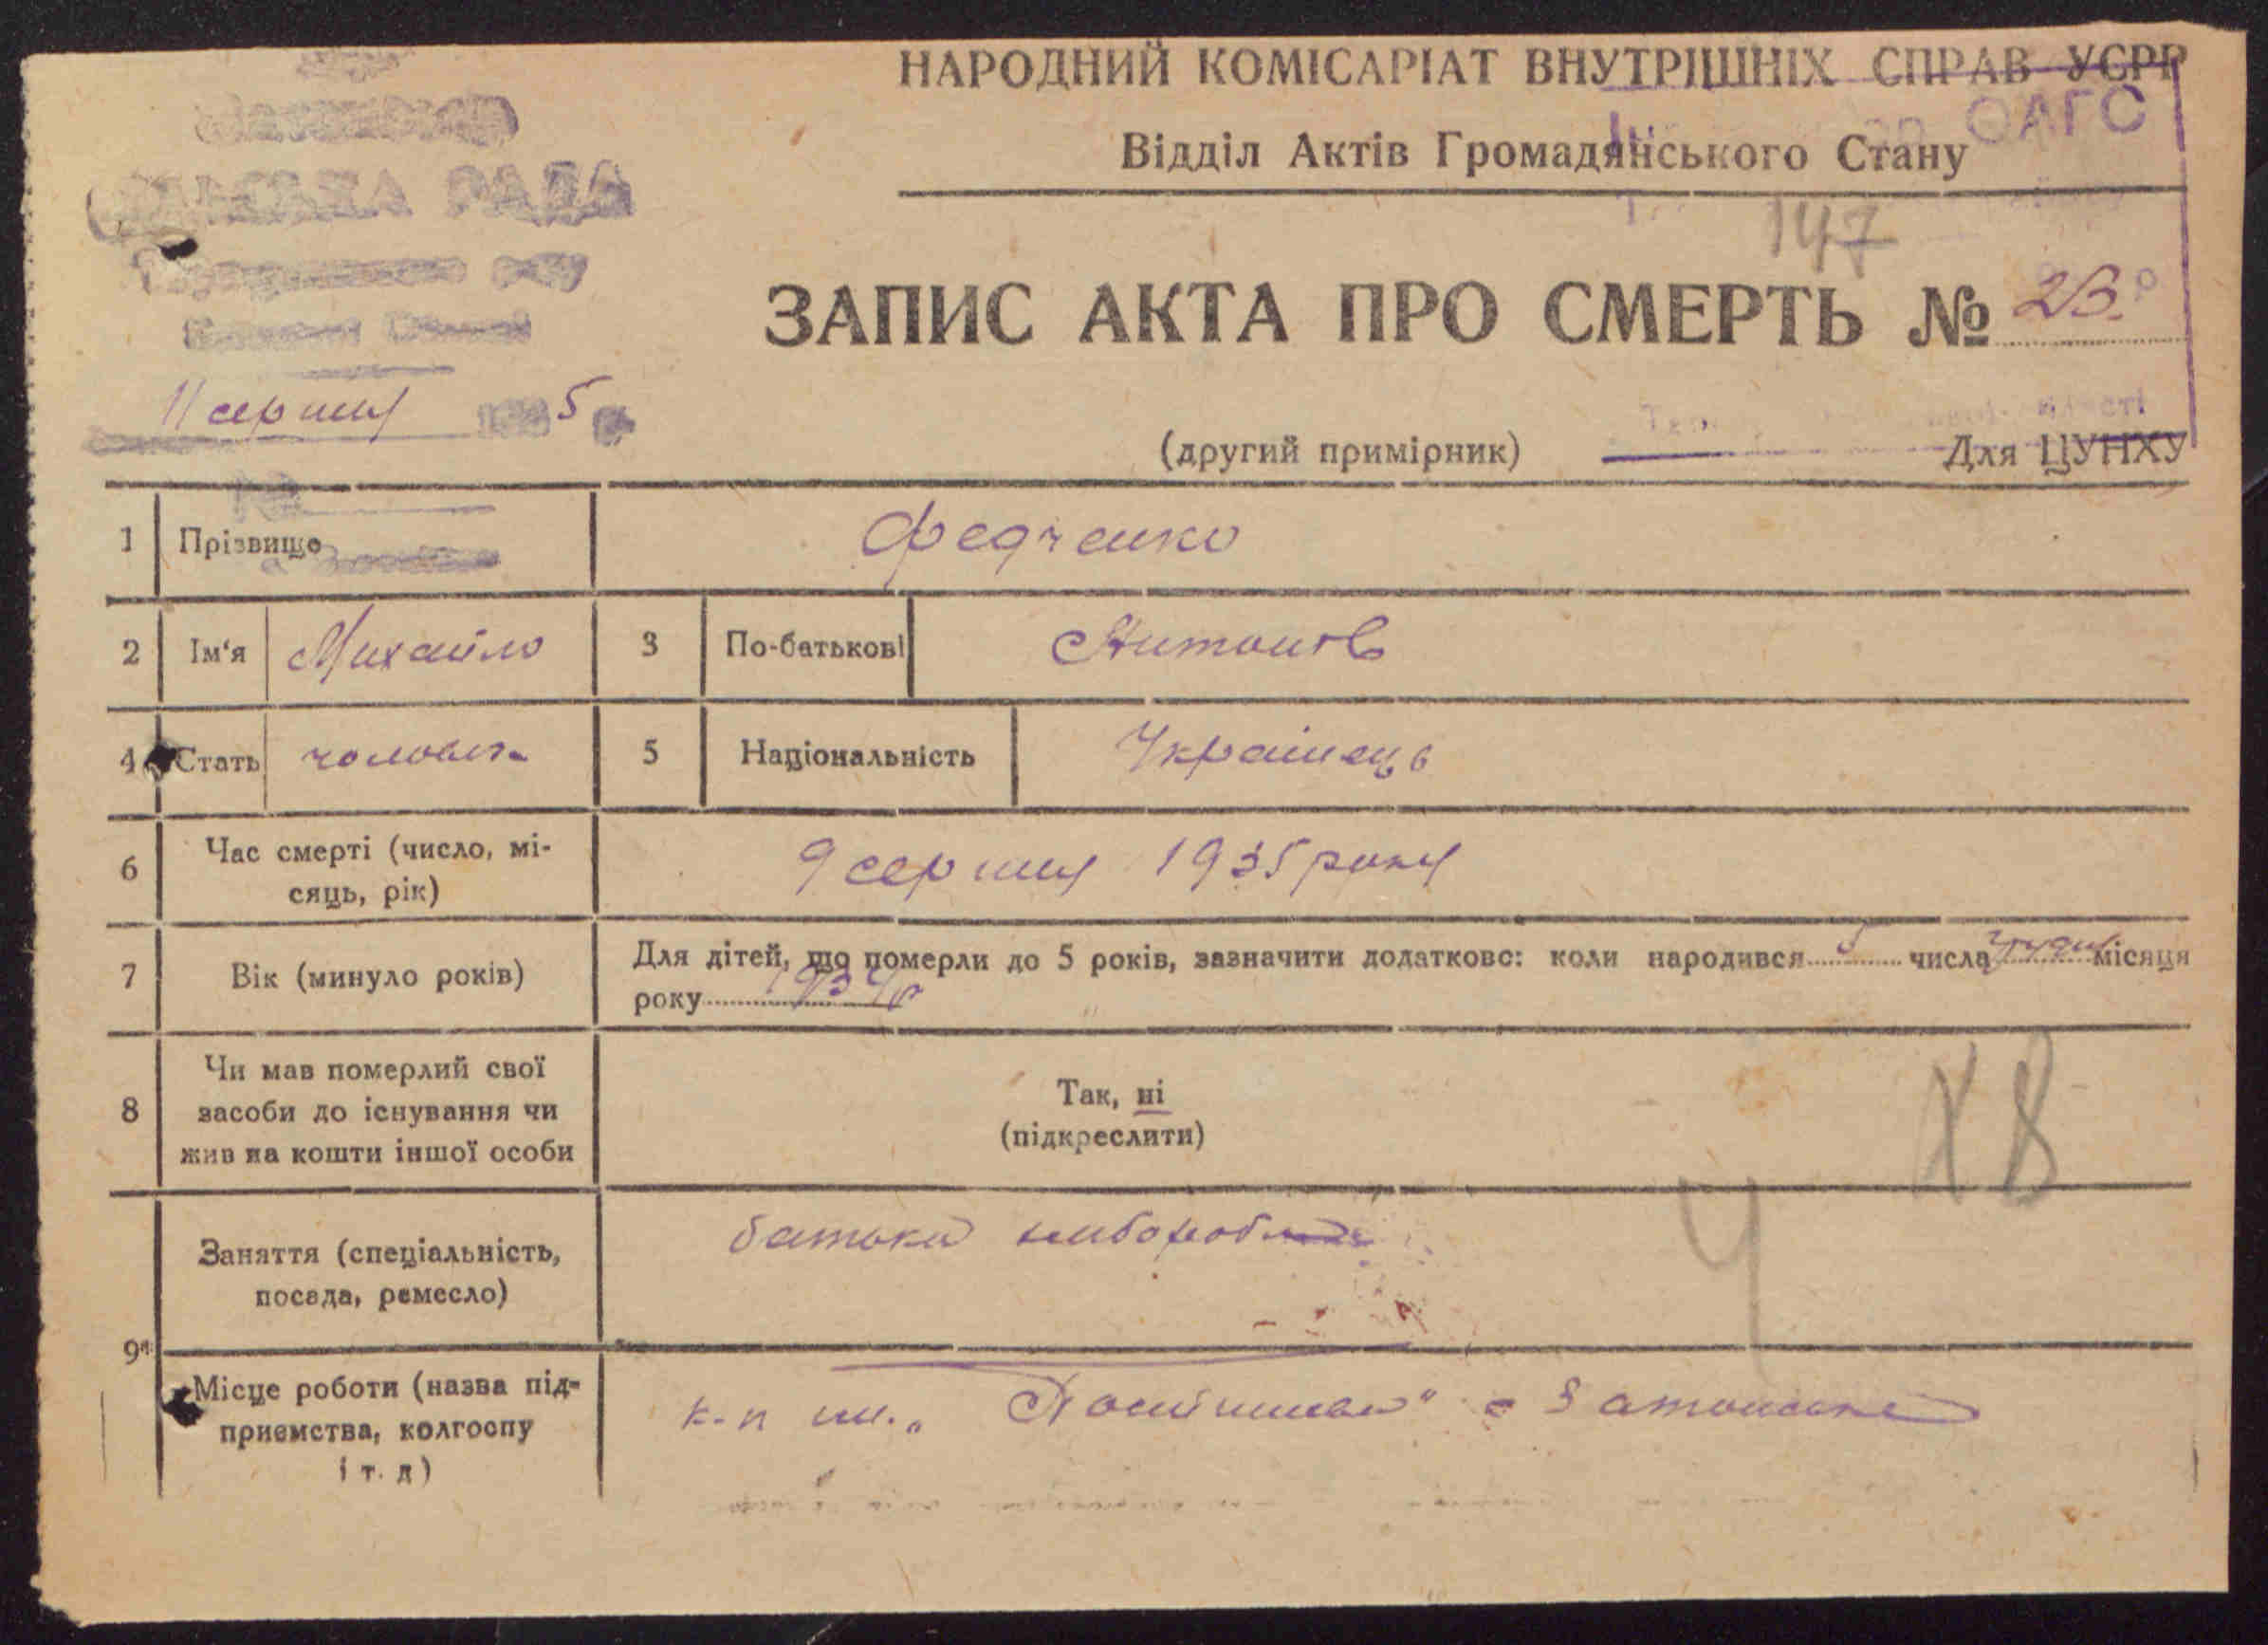 НАРОДНИЙ КОМІСАРІАТ ВНУТРІШНІХ СПРАВ УСРР
ОАГС
Відділ Актів Громадянського Стану
РАДА
147
ЗАПИС АКТА ПРО СМЕРТЬ № 23
11 серпня 5
(другий примірник) Для ЦУНХУ
1 Прізвище Федченко
2 Ім'я Михайло 3 По-батькові Антонів
4 Стать 5 Національність Українець
6 Час смерті (число, мі-
сяць, рік) 9 серпня 1935 року
7 Вік (минуло років) Для дітей, що померли до 5 років, зазначити додатково: коли народився 5 числа грудня місяця
року 1934 р
8 Чи мав померлий свої
засоби до існування чи
жив на кошти іншої особи
Так, ні
(підкреслити)
Х8
Заняття (спеціальність,
посада, ремесло) батьки хлібороби
4
9
Місце роботи (назва під-
приємства, колгоспу
і т. д) к-п ім. „Постишева"